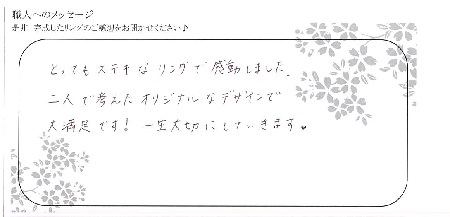 職人へのメッセージ
完成したリングのご感想をお聞かせください♪
とってもステキなリングで感動しました。
二人で考えたオリジナルなデザインで
大満足です！一生大切にしていきます。